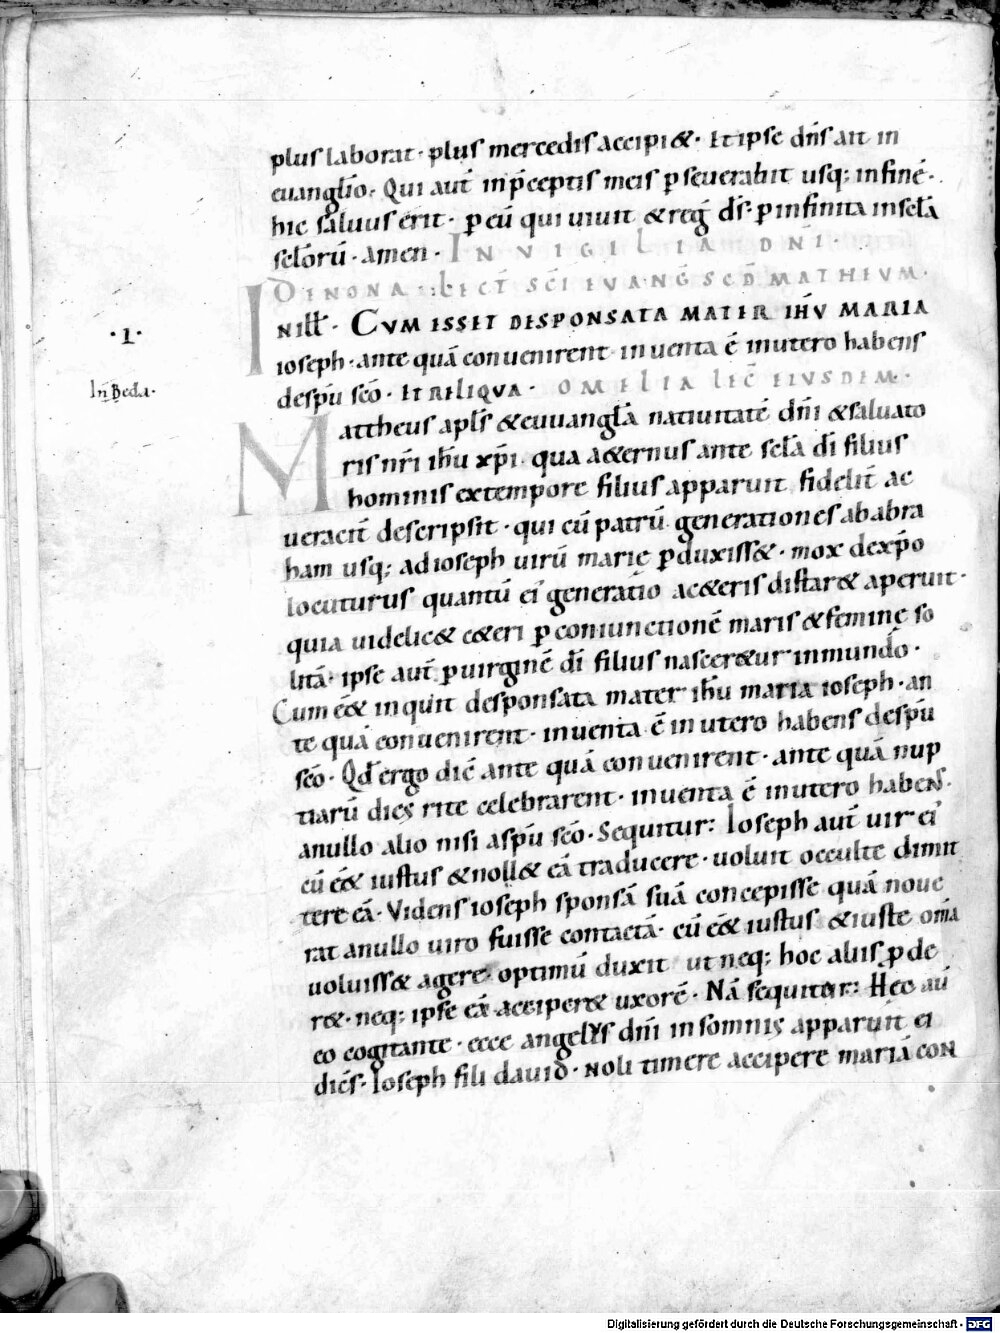 pluſ laborat · pluſ mercediſ accipi& · Et ipſe dn̄ſ ait in
euangl̄io · Qui aut̄ in p̄ceptiſ meiſ p̱ſeuerabit uſq; in finē ·
hic ſaluuſ erit · p̱ eū qui uiuit & reḡ dſ̄ · p̱ infinita in ſecl̄a
ſecl̄orū · amen · IN VIGILIA DN̄I ·
DE NONA · LECT̄ SC̄I EVANḠ SCD̄ MATHEVM ·
·I· IN ILL̄ · CVM ESSET DESPONSATA MATER IHV̄ MARIA
ioſeph · ante quā conuenirent inuenta ē in utero habenſ
In Beda ·
de ſpū ſcō · ET RELIQVA · OMELIA LEC̄ EIVSDEM ·
Mattheuſ apl̄ſ & euuangl̄a natiuitatē dn̄i & ſaluato
riſ nr̄i ihū xp̄i · qua a&ernuſ ante ſecl̄a dī filiuſ
hominiſ ex tempore filiuſ apparuit fidelit̄ ac
ueracit̄ deſcripſit · qui cū patrū generationeſ ab abra
ham uſq; ad ioſeph uirū marię p̱duxiſſ& · mox de xp̄o
locuturuſ quantū eī generatio a c&eriſ diſtar& aperuit ·
quia uidelic& c&eri p̱ coniunctionē mariſ & feminę ſo
litā · ipſe aut̄ p̱ uirginē dī filiuſ naſcer&ur in mundo ·
Cum eē& inquit deſponſata mater ihū maria ioſeph · an
te quā conuenirent · inuenta ē in utero habenſ de ſpū
ſcō · Qd̄ ergo dic̄ ante quā conuenirent · ante quā nup
tiarū dieſ rite celebrarent · inuenta ē in utero habenſ ·
a nullo alio niſi a ſpū ſcō · Sequitur: Ioſeph aut̄ uir eī
cū eē& iuſtuſ & noll& eā traducere · uoluit occulte dimit
tere eā · Videnſ ioſeph ſponſā ſuā concepiſſe quā noue
rat a nullo uiro fuiſſe contactā · cū eē& iuſtuſ & iuſte om̄a
uoluiſſ& agere optimū duxit ut neq; hoc aliiſ p̱de
r& · neq; ipſe eā acciper& uxorē · Nā ſequitur: Hęc aū
eo cogitante · ecce angeluſ dn̄i in ſomniſ apparuit ei
dicēſ · Ioſeph fili dauid · noli timere accipere mariā con
Digitalisierung gefördert durch die Deutsche Forschungsgemeinschaft · DFG